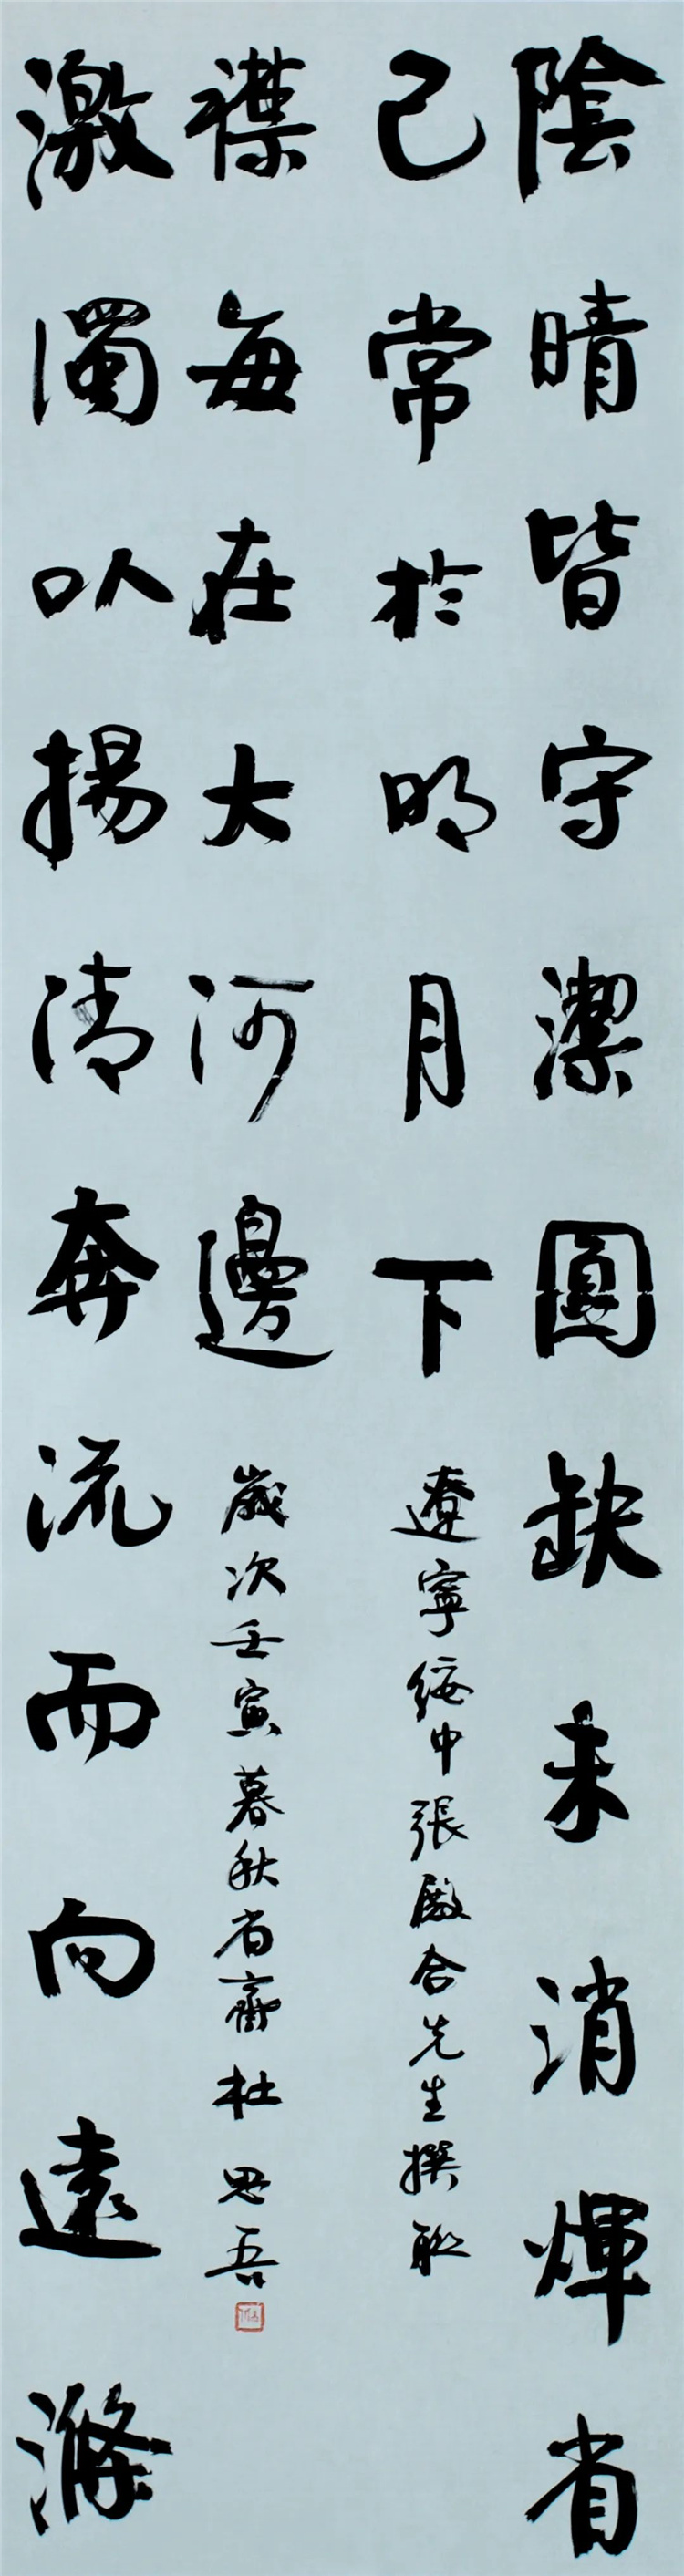 陰晴皆守潔圓缺未消輝省
己常於明月下
遼寧綏中張殿合先生撰聯
激濁以揚清奔流而向遠滌
襟每在大河邊
歲次壬寅暮秋省齋杜思吾